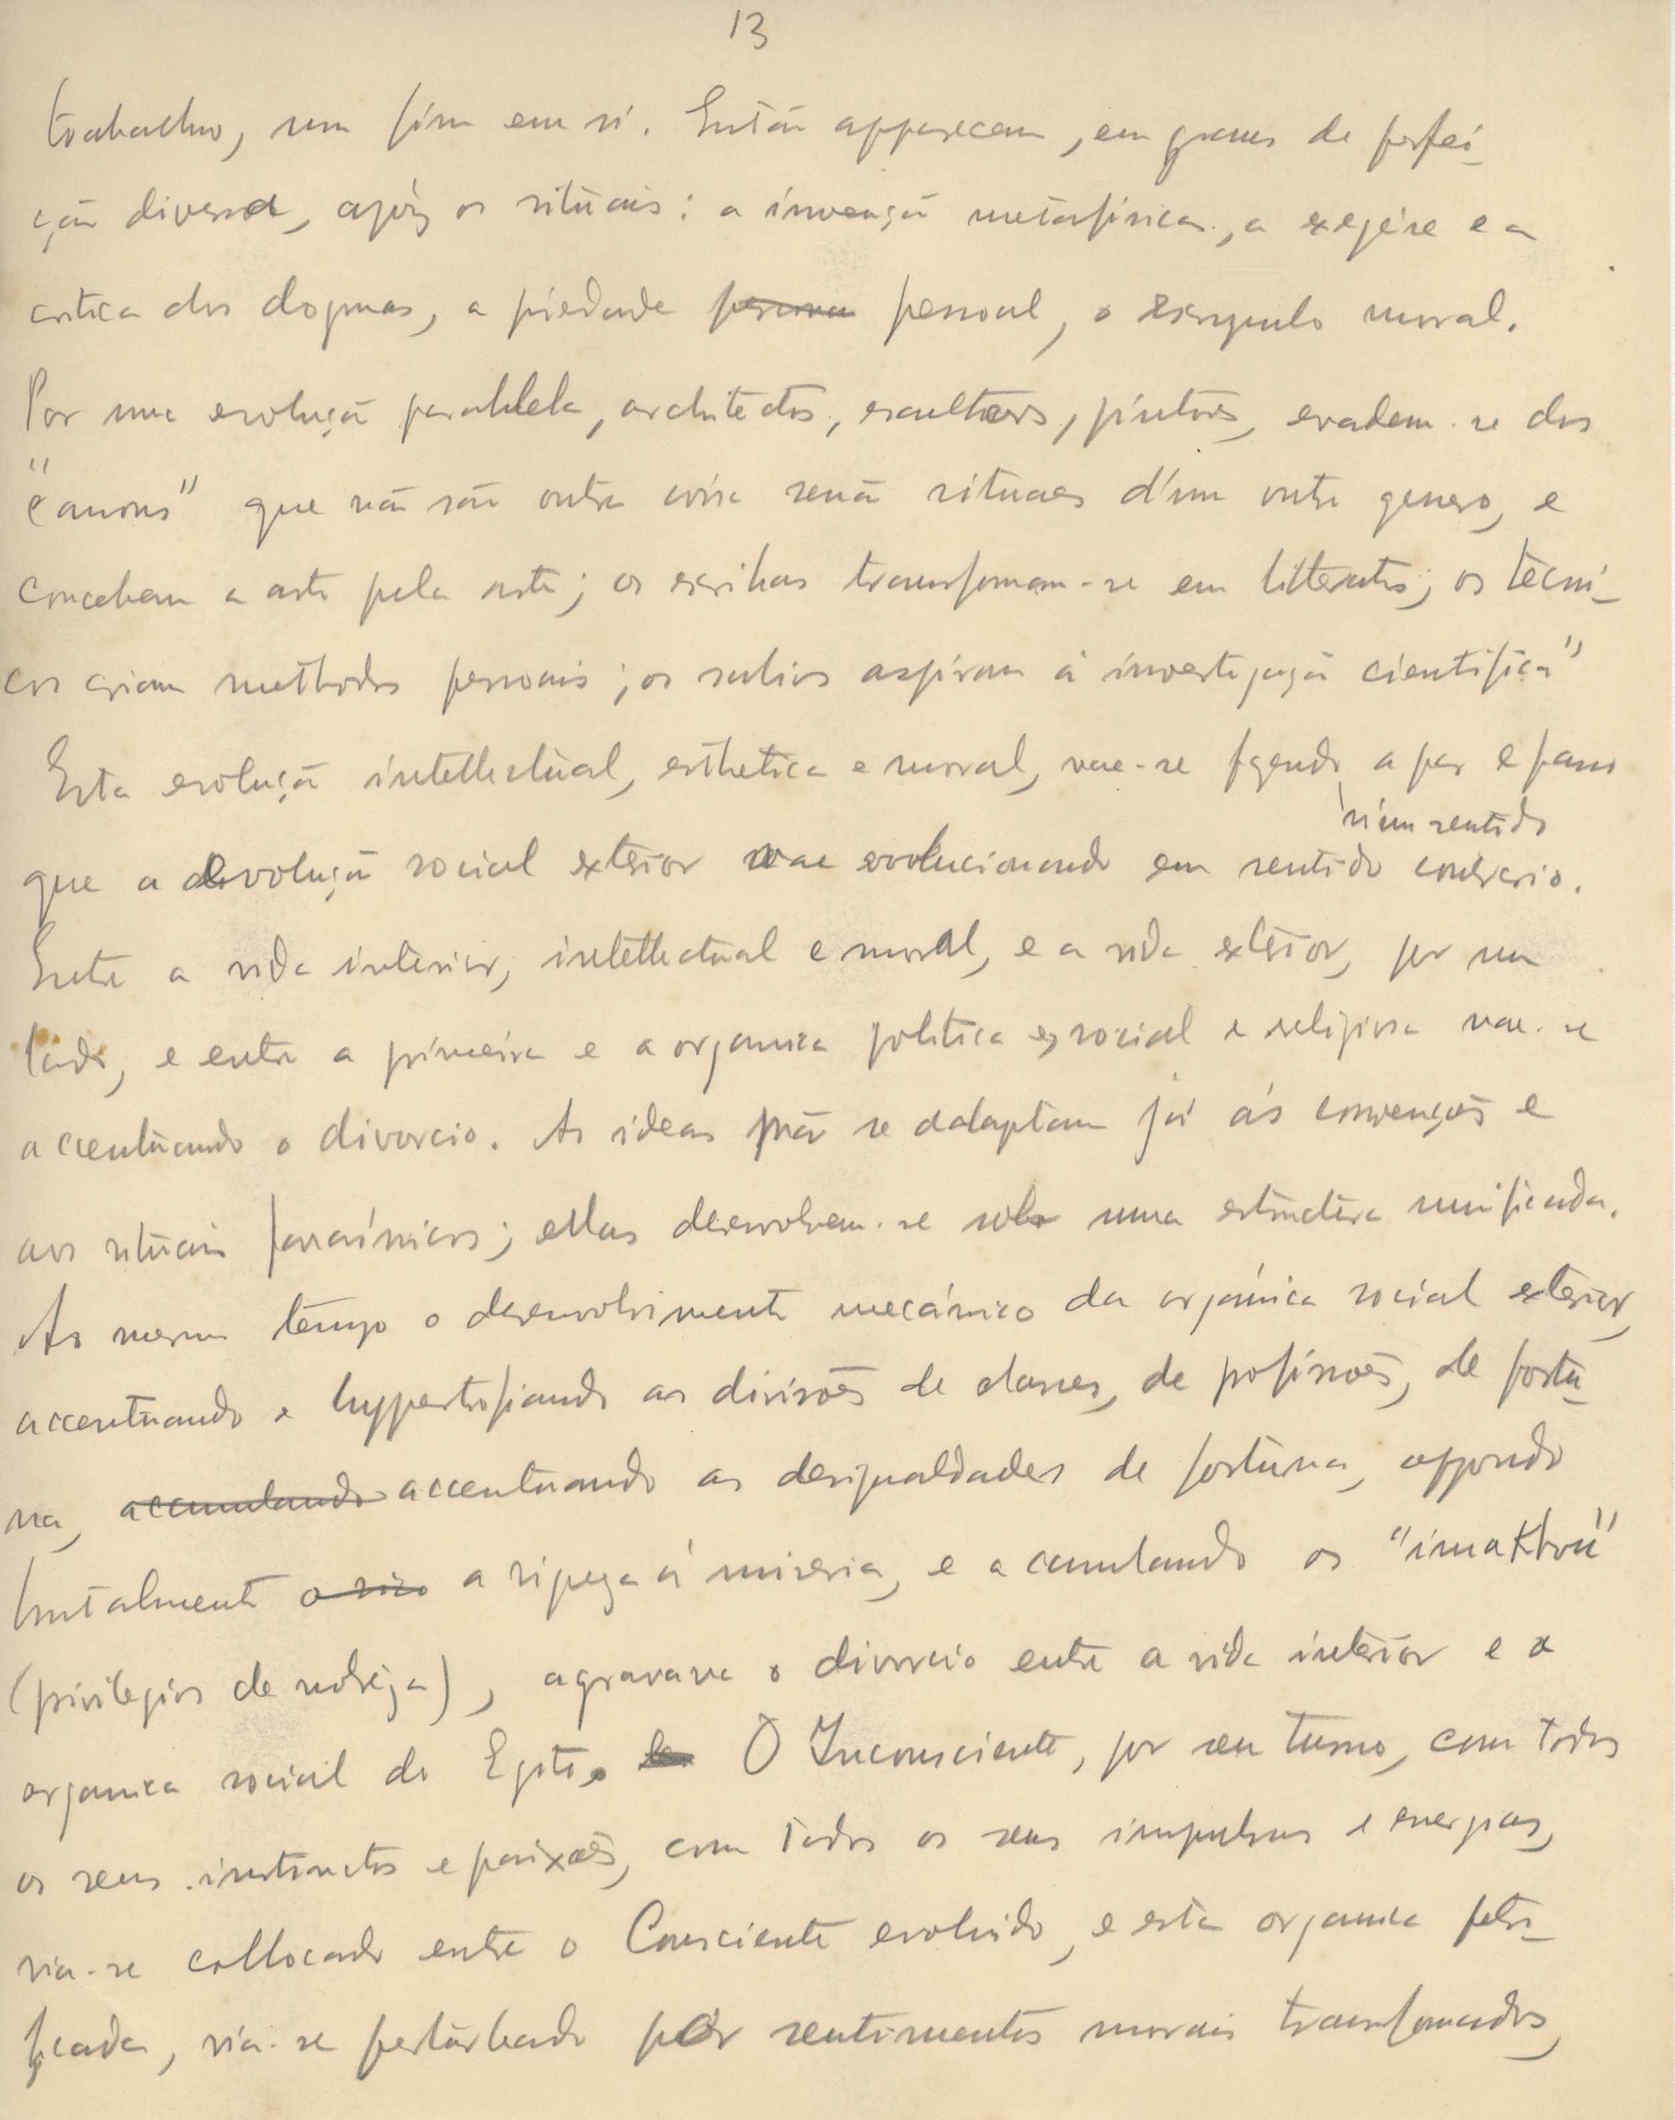 13
trabalho, um fim em si. Então apparecem, em graus de perfei-
ção diversa, após os rituais: a invenção metafisica, a exegése e a
critica dos dogmas, a piedade pessoal, o escrupulo moral.
Por uma evolução parallela, architétos, escultores, pintores, evadem-se dos
"canons" que não são outra coisa senão rituaes d'um outro genero, e
concebem a arte pela arte; os escribas transformam-se em litteratos; os técni-
cos criam methodos pessoais; os sabios aspiram á investigação cientifica"
Esta evolução intellectual, esthetica e moral, vae-se fazendo a par e passo
n'um sentido
que a evolução social exterior vae evolucionando em sentido contrario.
Entre a vida interior, intellectual e moral, e a vida exterior, por um
lado, e entre a primeira e a organica politica, social e religiosa vae-se
accentuando o divorcio. As ideas não se adaptam já ás convenções e
aos rituais faraónicos; ellas desenvolvem-se sob uma estructura unificada.
Ao mesmo tempo o desenvolvimento mecánico da orgánica social exterior,
accentuando e hyppertrofiando as divisões de classes, de profissões, de fortu-
na, accumulando accentuando as desigualdades de fortuna, oppondo
brutalmente o rico a riqueza á miseria, e acumulando os "imakhou"
(privilegios de nobreza), agravava o divorcio entre a vida interior e a
organica social do Egito. O Inconsciente, por seu turno, com todos
os seus instinctos e paixões, com todos os seus impulsos e energias,
via-se collocado entre o Consciente evoluido, e esta organica petri-
ficada, via-se perturbado por sentimentos morais transformados,